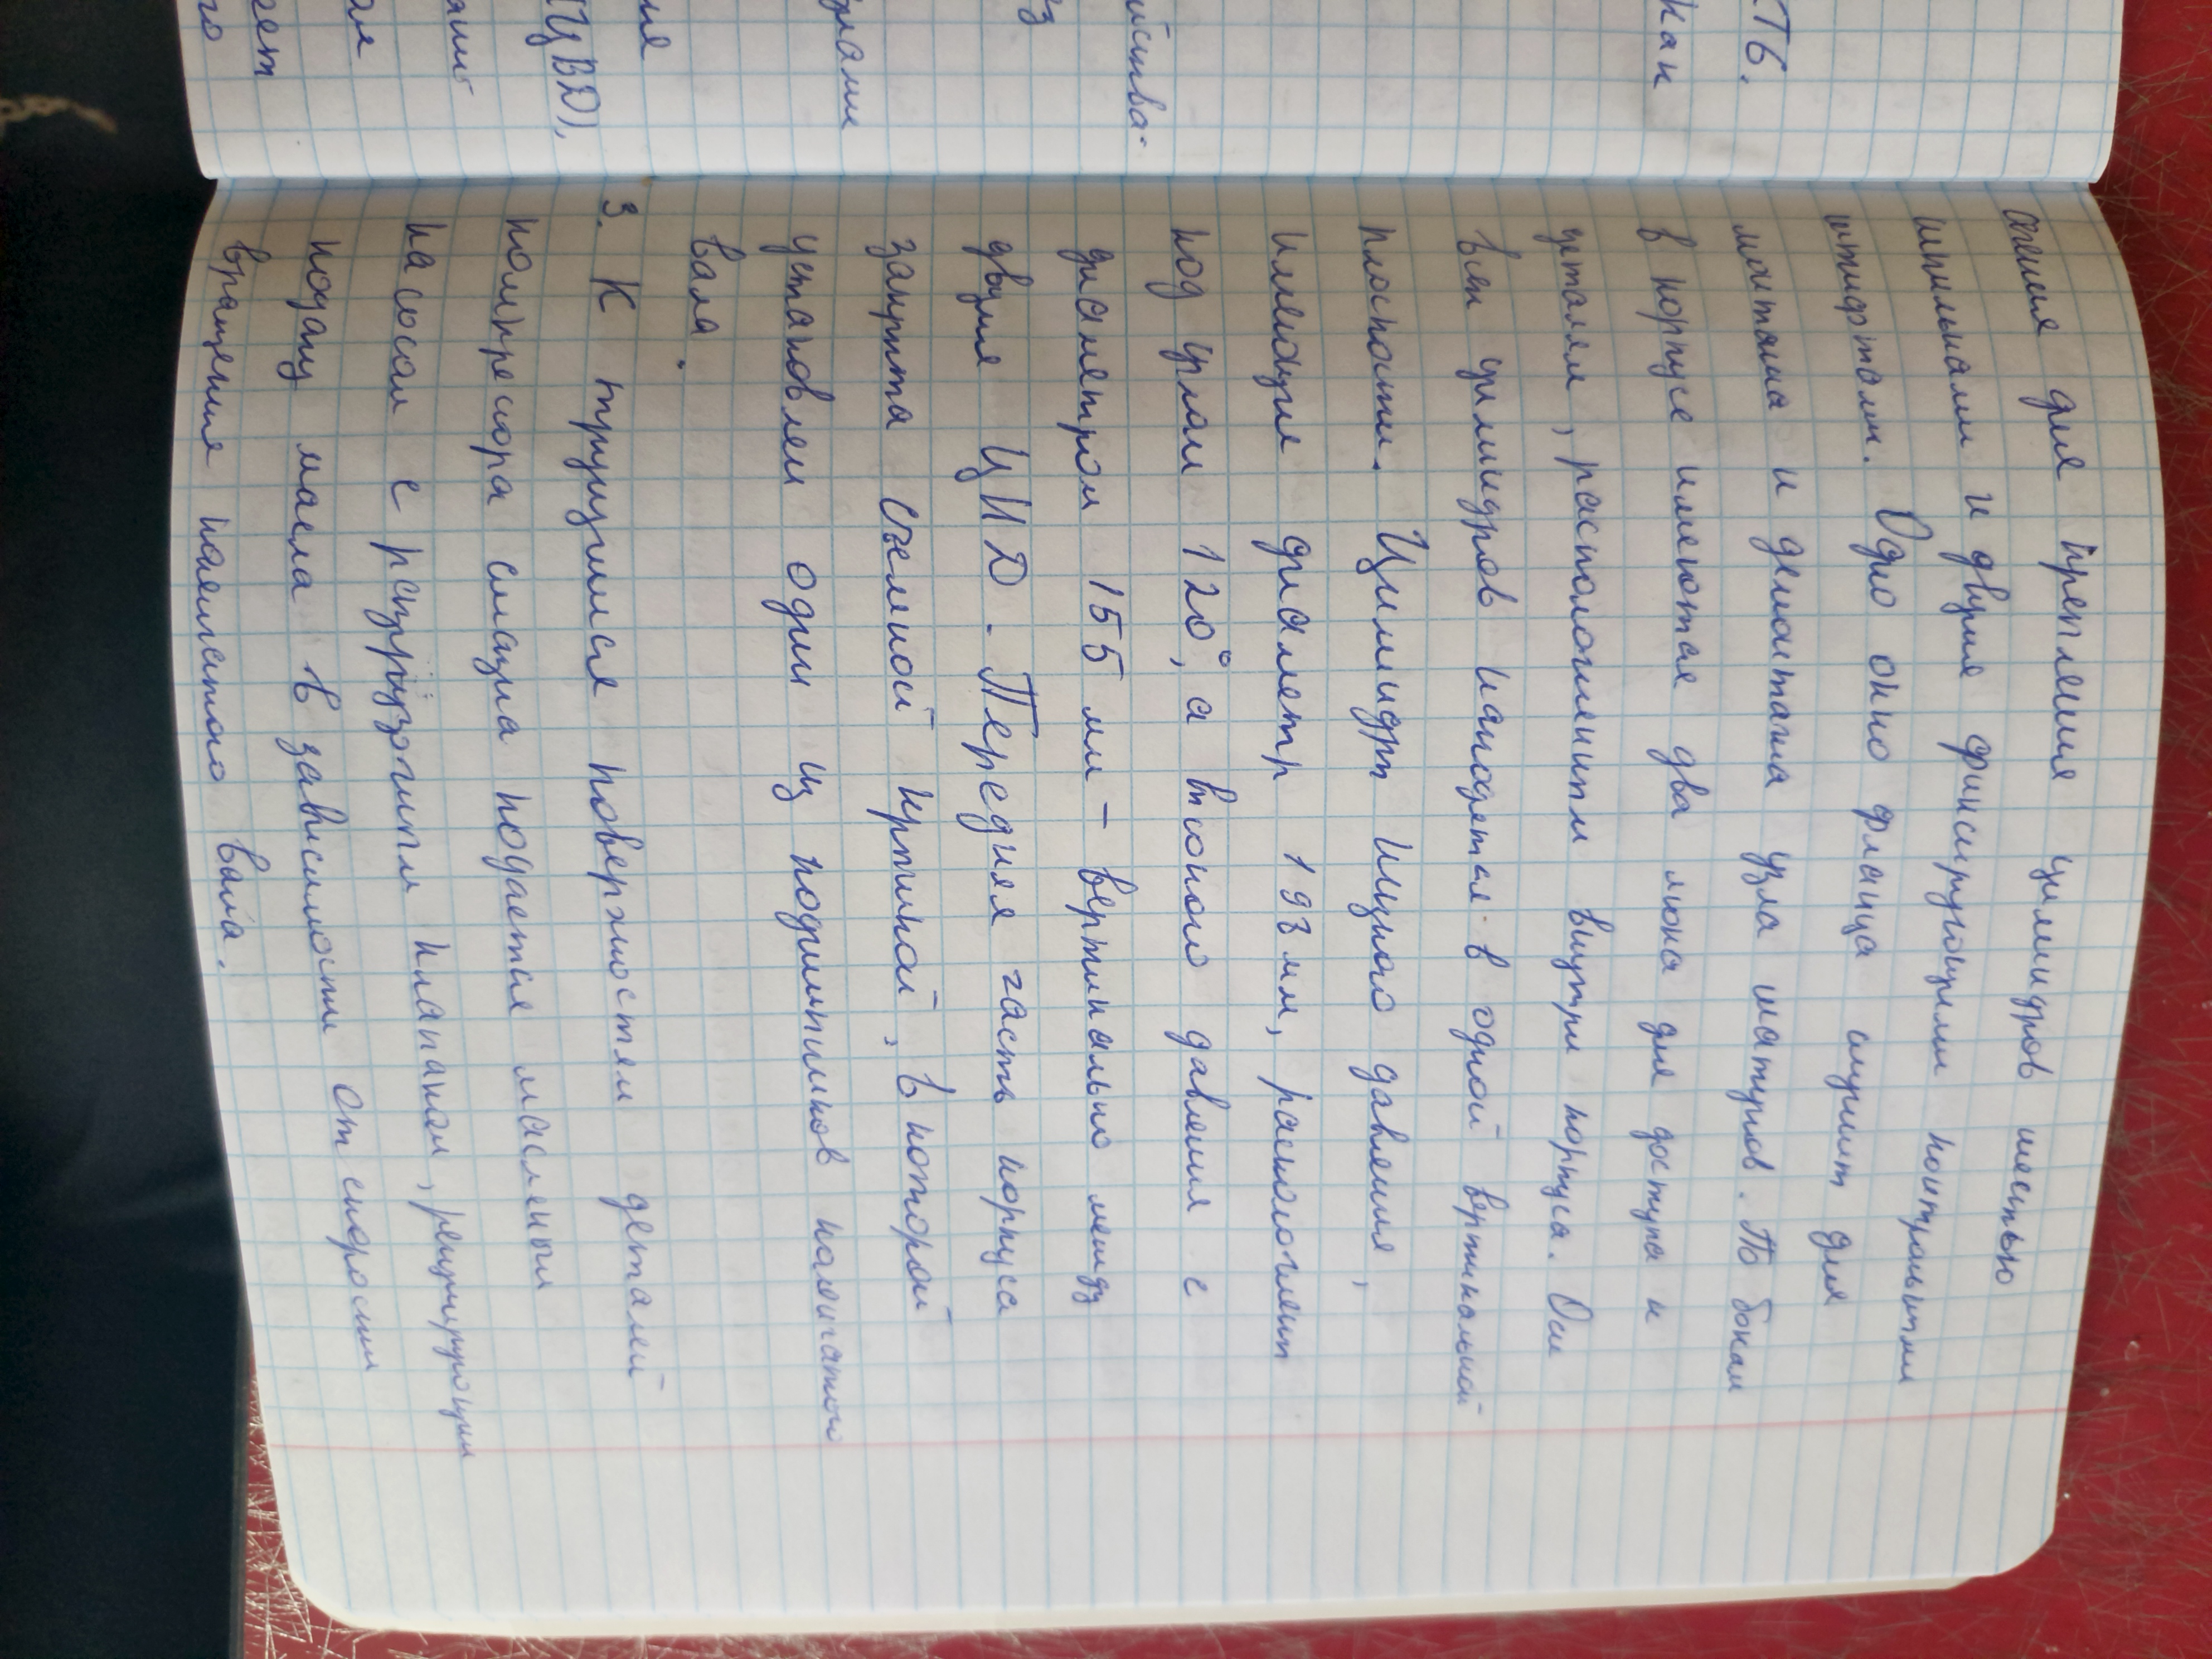 КТ6.
как
йства-
из
ия
ЦВД),
ая
го
для крепления цилиндров шестью
шпильками и двумя фиксирующими контрольными
штифтами. Одно окно фланца служит для
монтажа и демонтажа узла шатунов. По бокам
в корпусе имеются два люка для доступа к
деталям, расположенным внутри корпуса. Оси
всех цилиндров находятся в одной вертикальной
плоскости. Цилиндры низкого давления,
имеющие диаметр 198 мм, расположены
под углом 120°, а высокого давления с
диаметром 155 мм - вертикально между
двумя ЦНД. Передняя часть корпуса
закрыта съемной крышкой, в которой
установлен один из подшипников коленчатого
вала.
3. К трущимся поверхностям деталей
компрессора смазка подается масляным
насосом с разгрузочным клапаном, регулирующим
подачу масла в зависимости от скорости
вращения коленчатого вала.